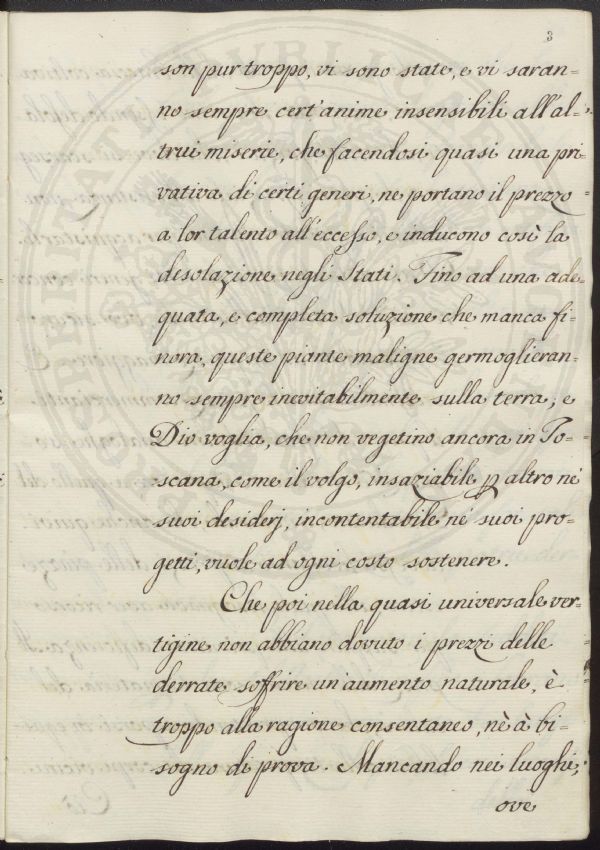 3
son pur troppo, vi sono state, e vi saran-
no sempre cert'anime insensibili all'al-
trui miserie, che facendosi quasi una pri-
vativa di certi generi, ne portano il prezzo
a lor talento all'eccesso, e inducono così la
desolazione negli Stati. Fino ad una ade-
quata, e completa soluzione che manca fi-
nora, queste piante maligne germoglieran-
no sempre inevitabilmente sulla terra, e
Dio voglia, che non vegetino ancora in To-
scana, come il volgo, insaziabile p altro ne'
suoi desiderj, incontentabile ne' suoi pro-
getti, vuole ad ogni costo sostenere.
Che poi nella quasi universale ver-
tigine non abbiano dovuto i prezzi delle
derrate soffrire un'aumento naturale, è
troppo alla ragione consentaneo, nè à bi-
sogno di prova. Mancando nei luoghi,
ove